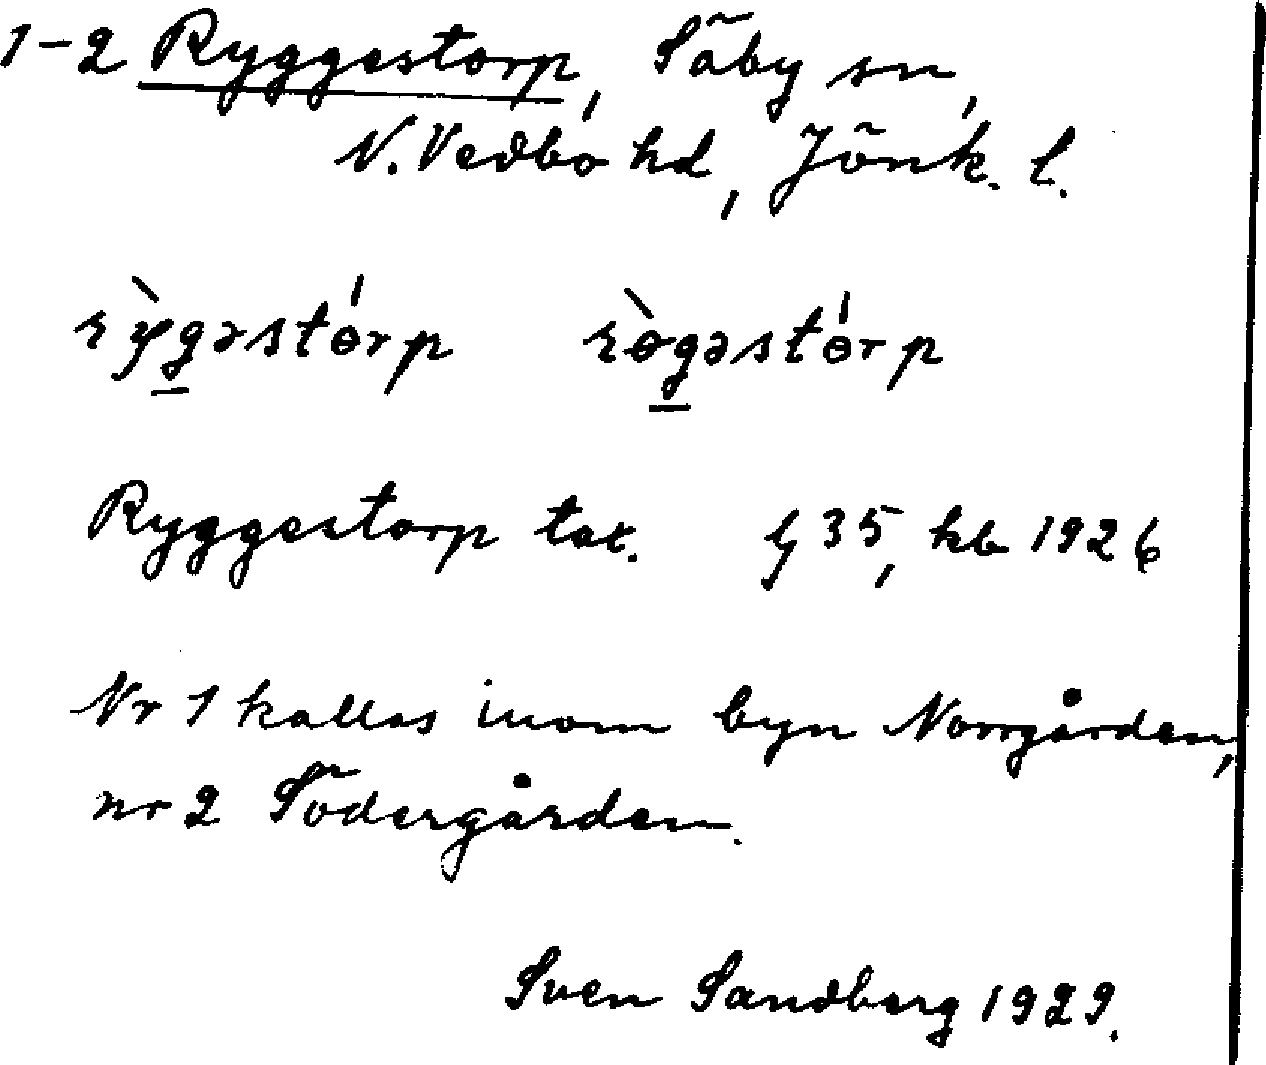 1-2 Ryggestorp, Säby sn,
N. Vedbo hd, Jönk. l.
rỳgəstɵ́rp rɵ̀gəstɵ́rp
Ryggestorp tax. § 35, kb 1926
Nr 1 kallas inom byn Norrgården,
nr 2 Södergården.
Sven Sandberg 1929.